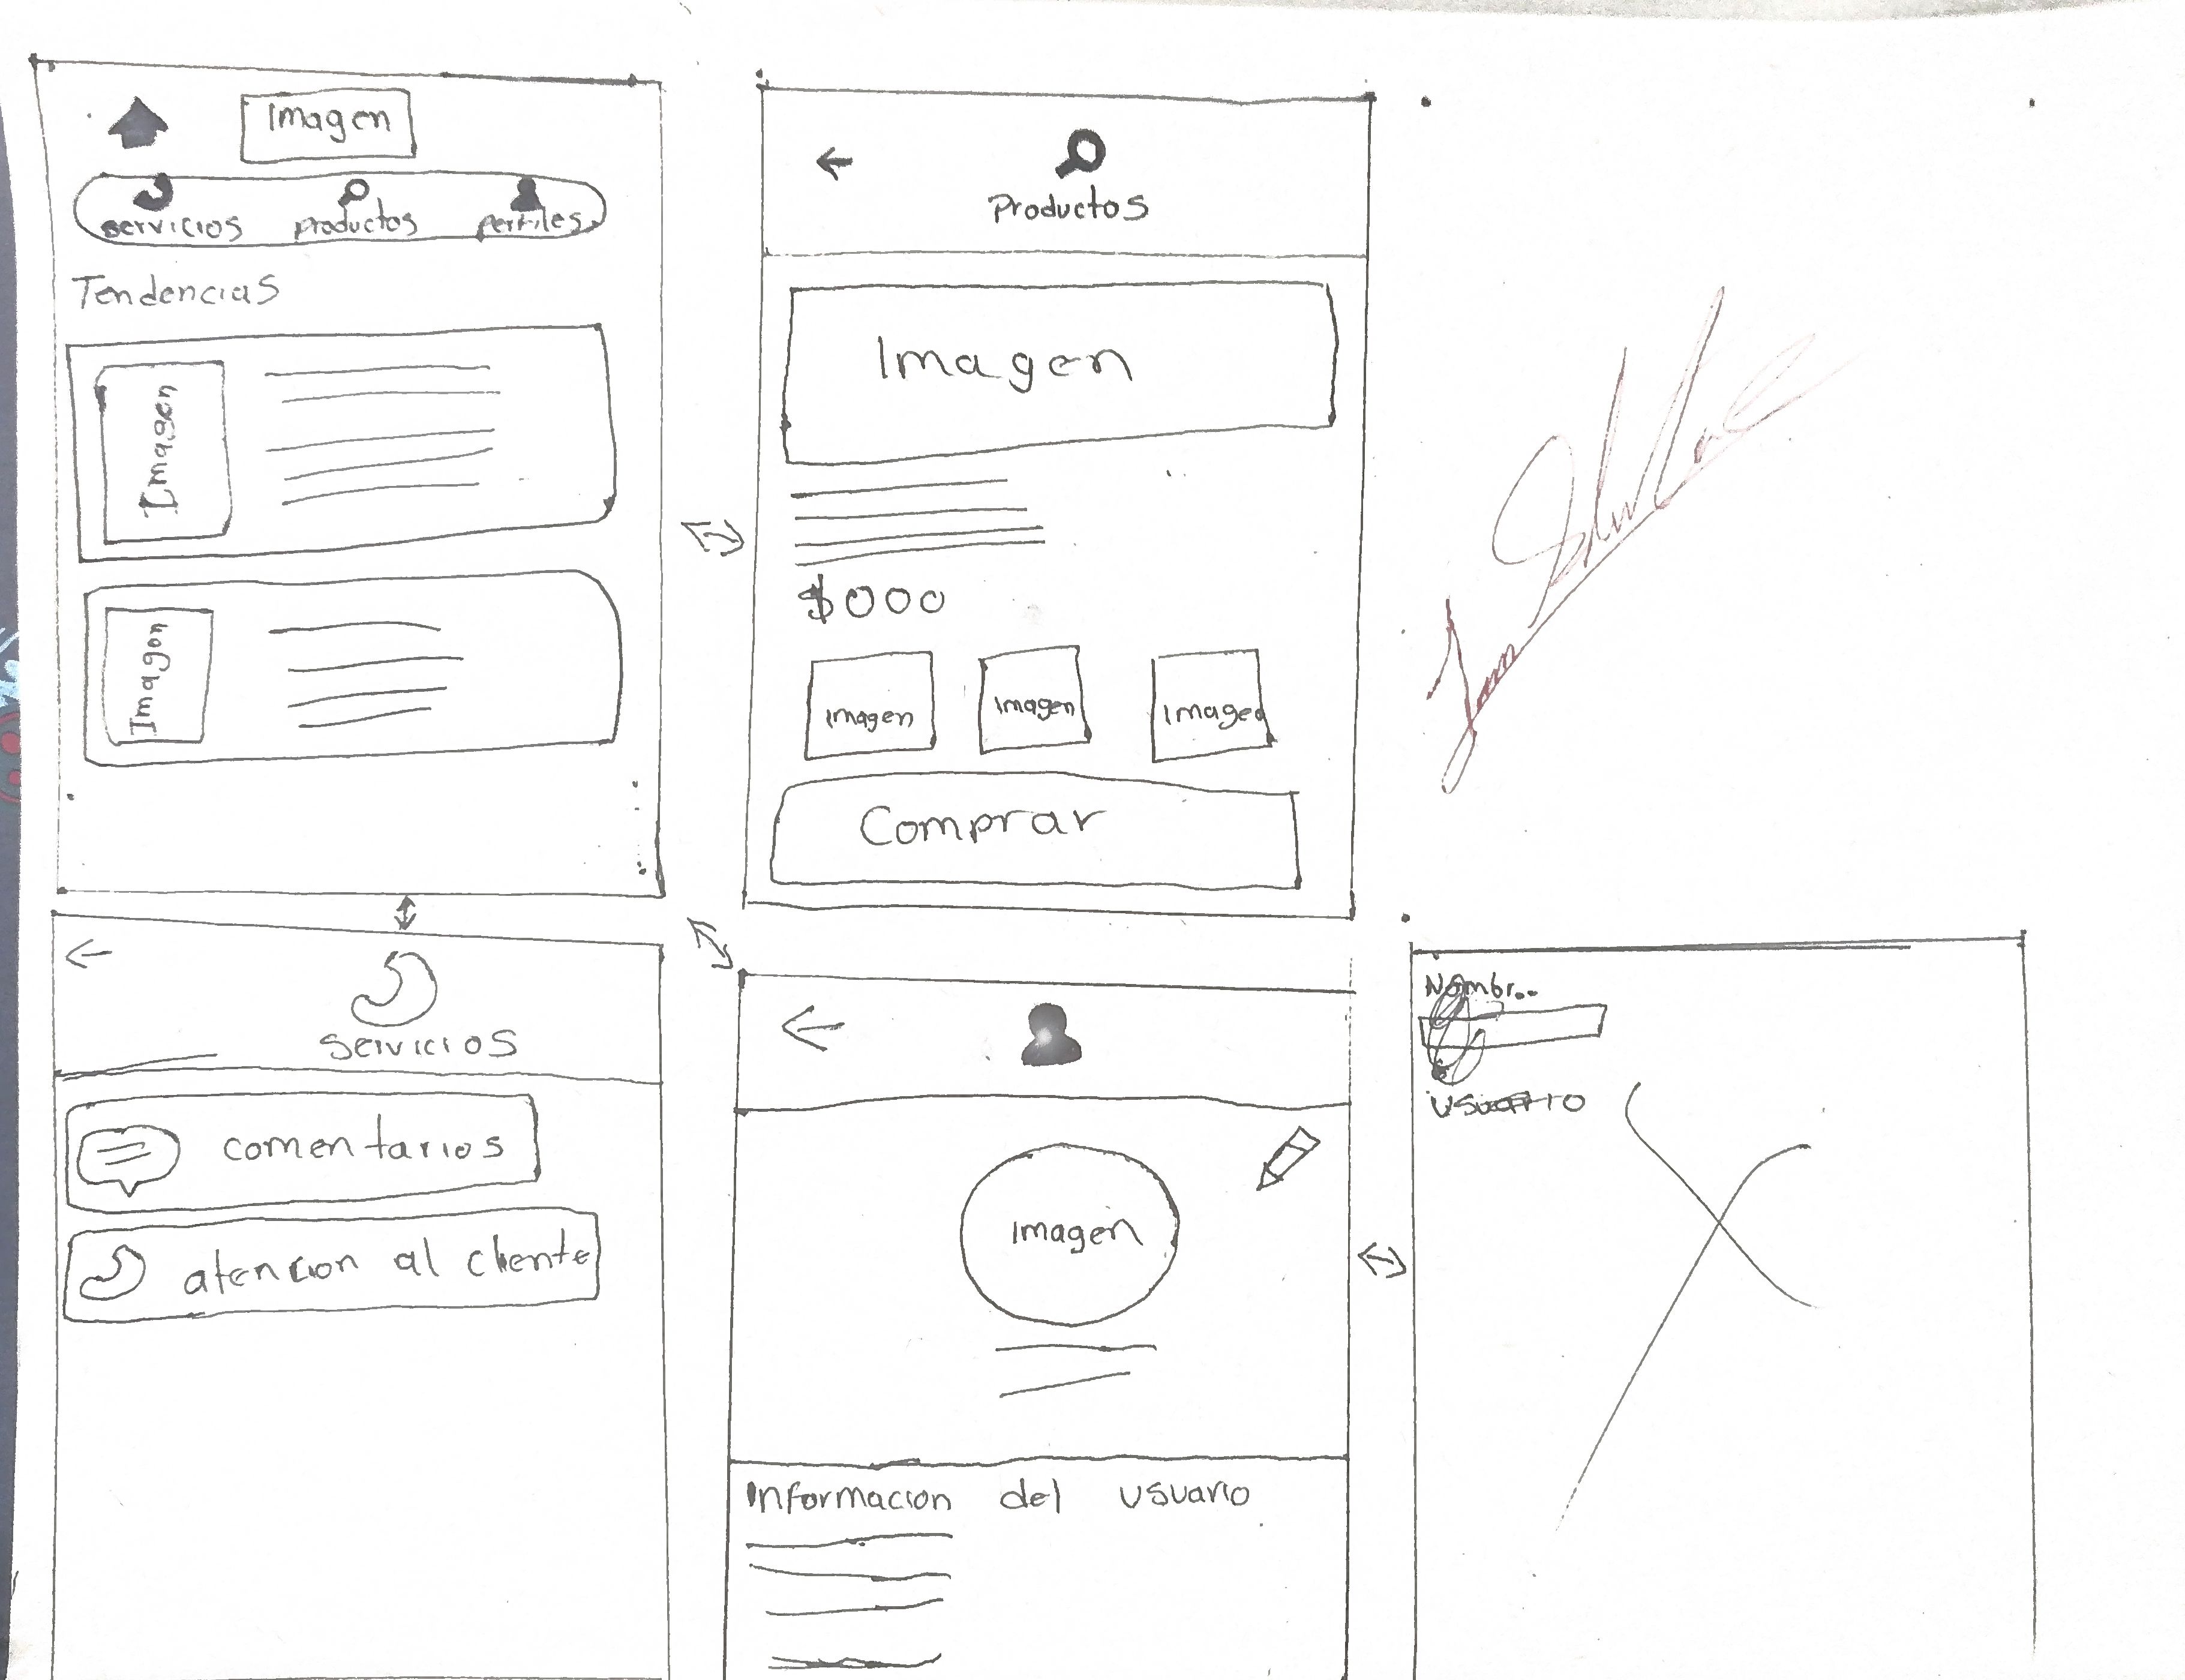 Imagen
servicios productos perfiles
Tendencias
Imagen
Imagen
Productos
Imagen
$000
Imagen Imagen Imagen
Comprar
Servicios
comentarios
atencion al cliente
Imagen
Informacion del usuario
Nombr..
Usuario